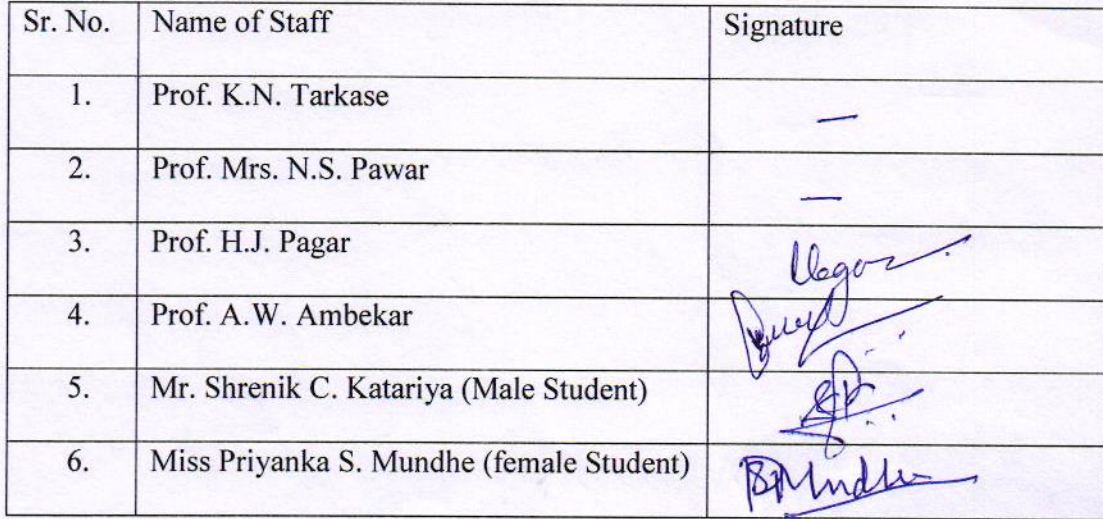 Sr. No. Name of Staff Signature
1. Prof. K.N. Tarkase —
2. Prof. Mrs. N.S. Pawar —
3. Prof. H.J. Pagar
4. Prof. A.W. Ambekar
5. Mr. Shrenik C. Katariya (Male Student)
6. Miss Priyanka S. Mundhe (female Student)